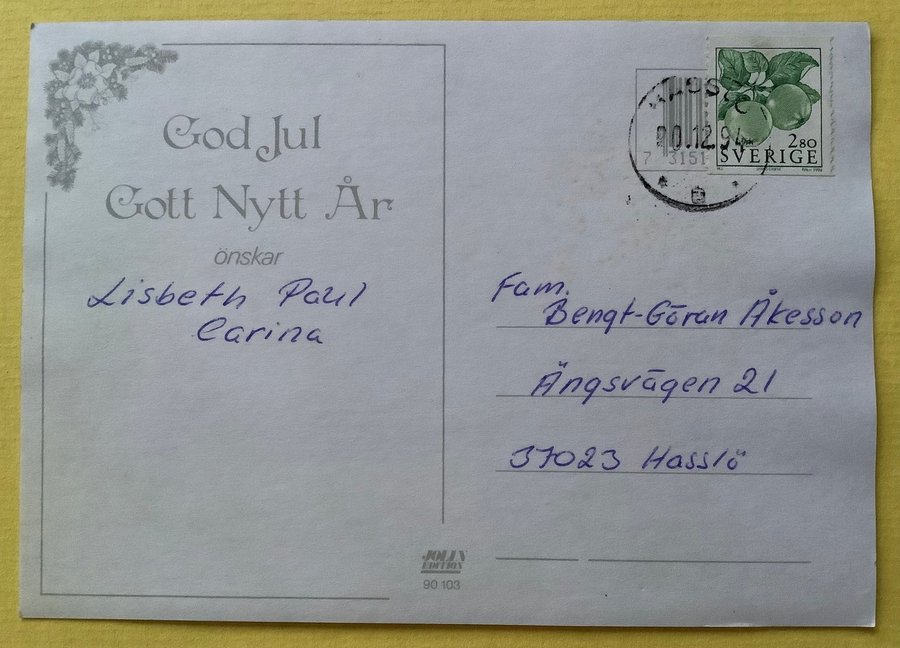 God Jul
Gott Nytt År
önskar
Lisbeth Paul
Carina
20.12.94
7 3151
2 80
SVERIGE
Fam.
Bengt-Göran Åkesson
Ängsvägen 21
37023 Hasslö
JOLIN
EDITION
90 103